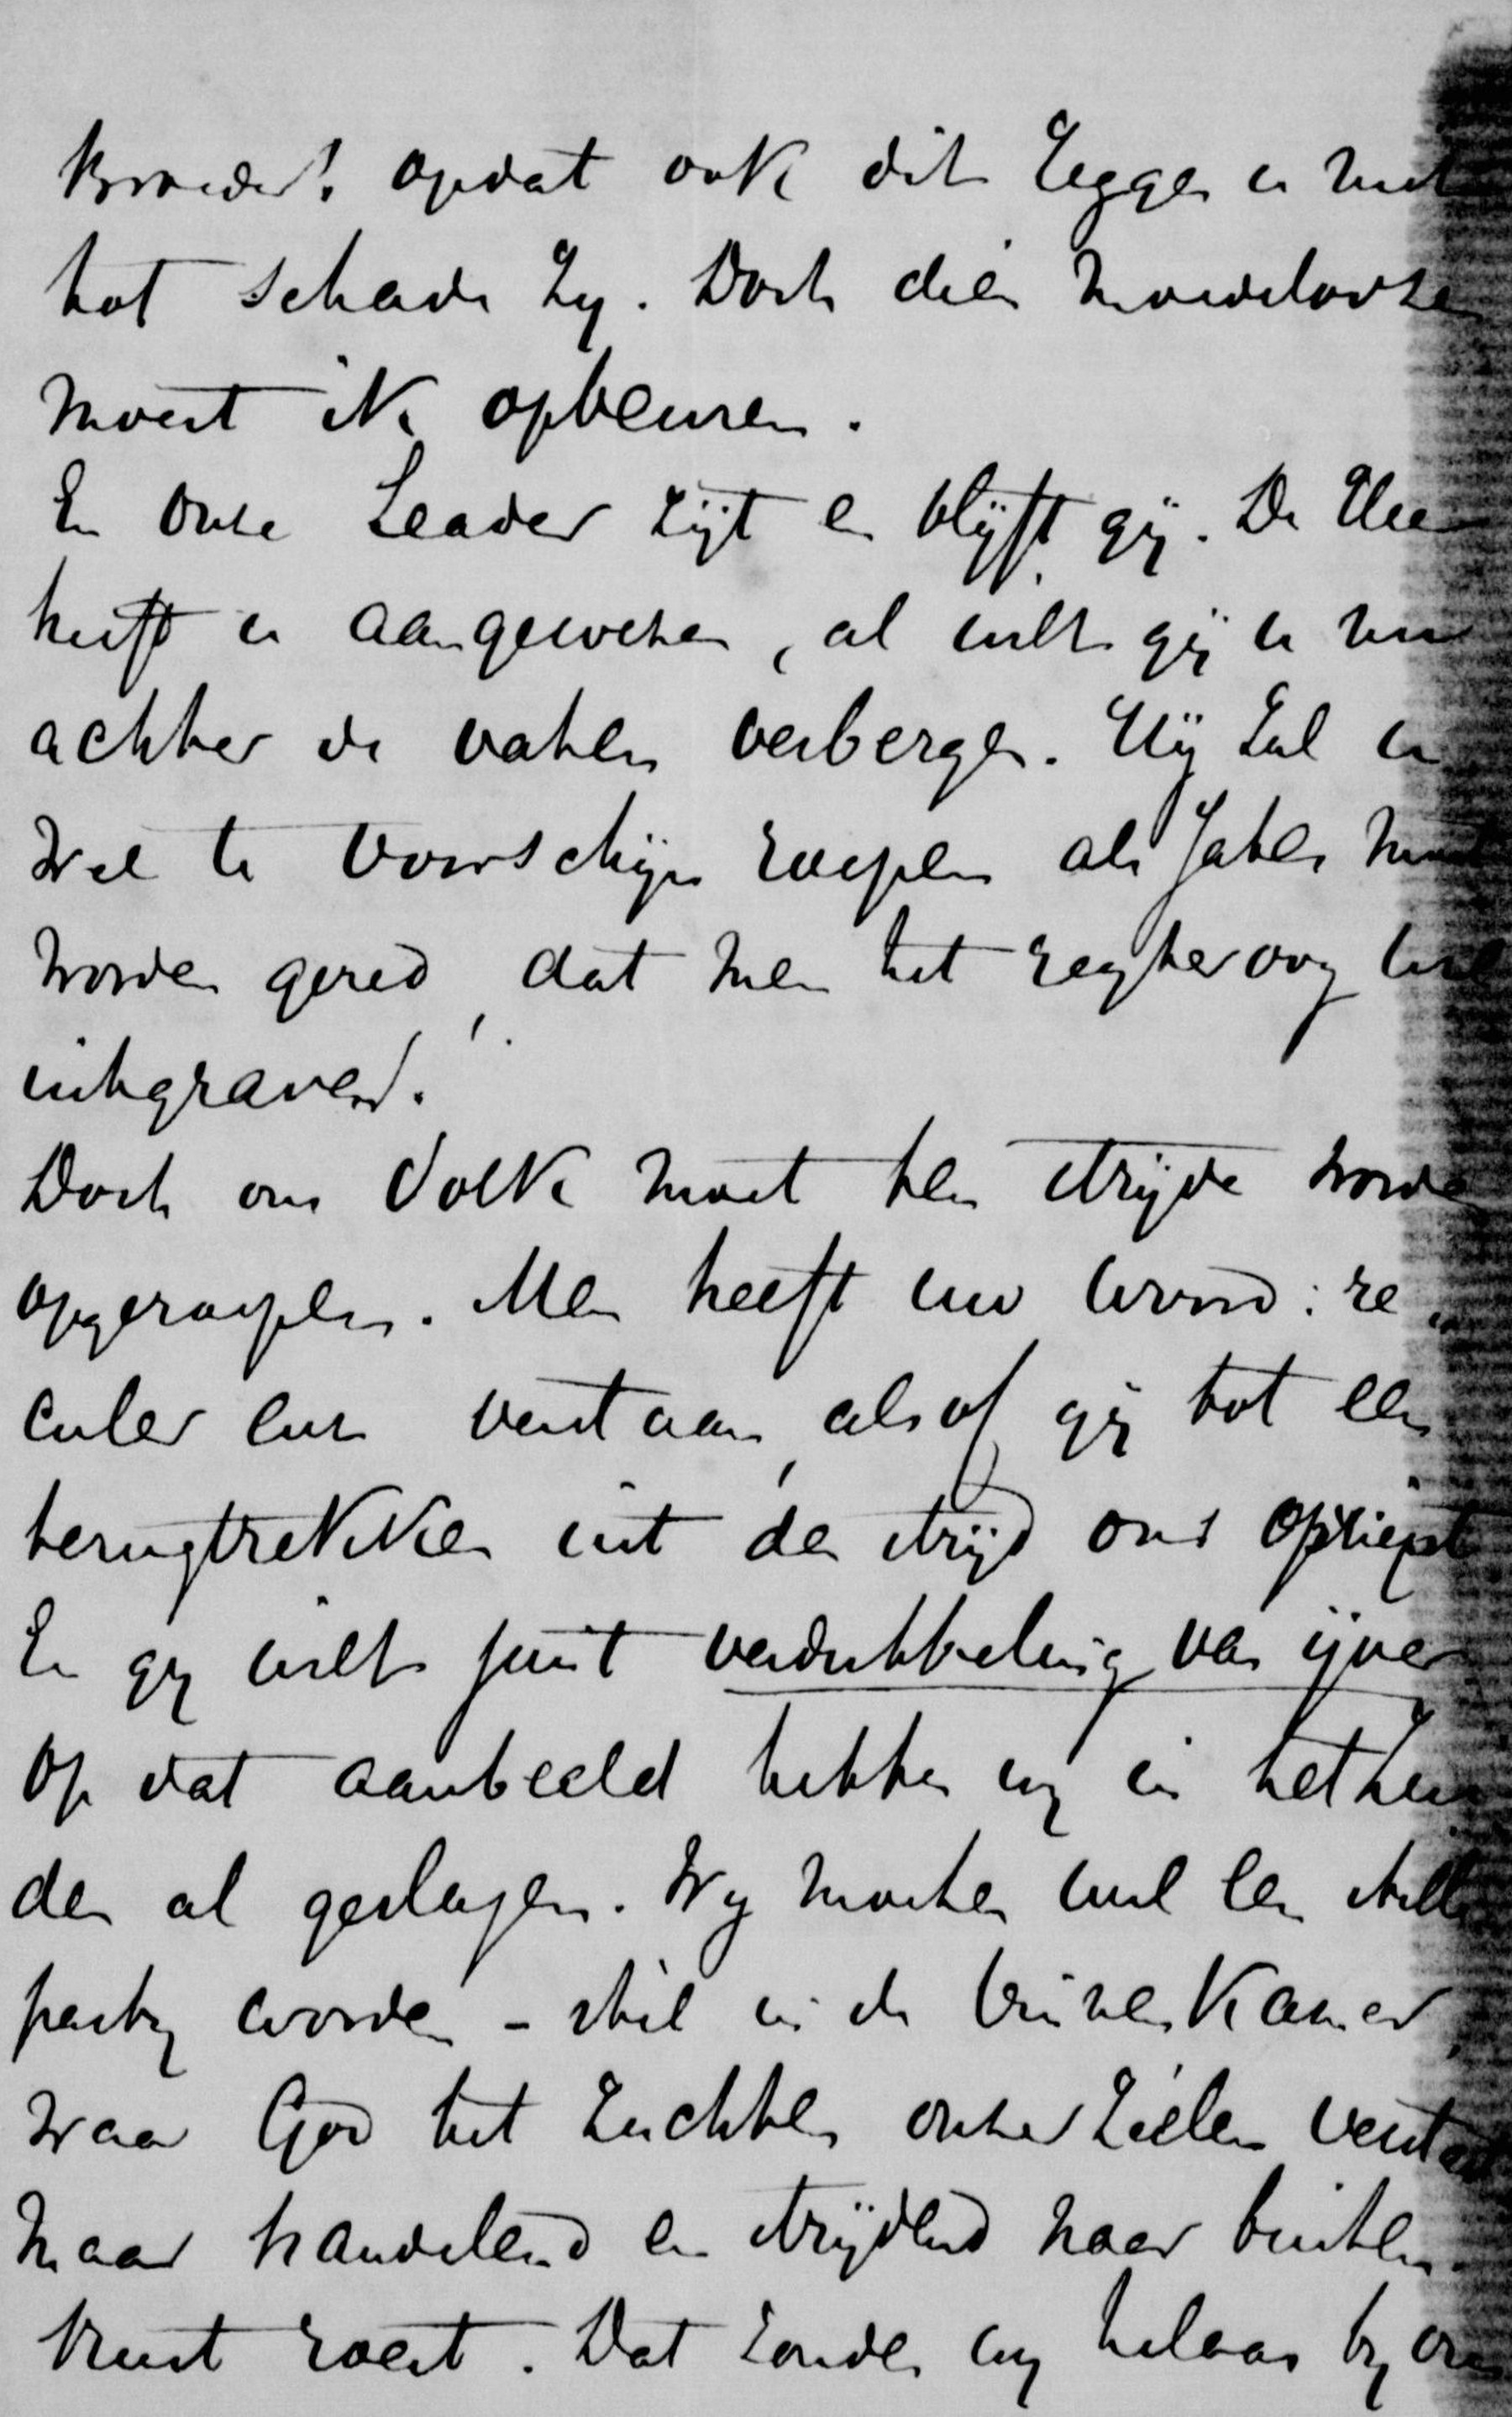 broeder! opdat ook dit zeggen u niet
tot schade zy. Doch dien moedeloozen
moest ik opbeuren.
En onze Leader zijt en blijft gij. De Heer
heeft u aangewezen, al wilt gij u nu
achter de vaten verbergen. Hij zal u
wel te voorschijn roepen als Jabes moet
worden gered, dat men het regteroog wil
uitgraven.
Doch ons volk moet ten strijde worden
opgeroepen. Men heeft uw woord: re
culer enz verstaan, alsof gij tot een
terugtrekken uit den strijd ons opriept
En gy wilt juist verdubbeling van ijver
Op dat aanbeeld hebben wy in het
den al geslagen. Wy moeten wel een stille
party worden - stil in de binnenkamer,
waar God het zuchten onzer zielen verstaat
maar handelend en strijdend naar buiten.
Rust roest. Dat zouden wy helaas by ons